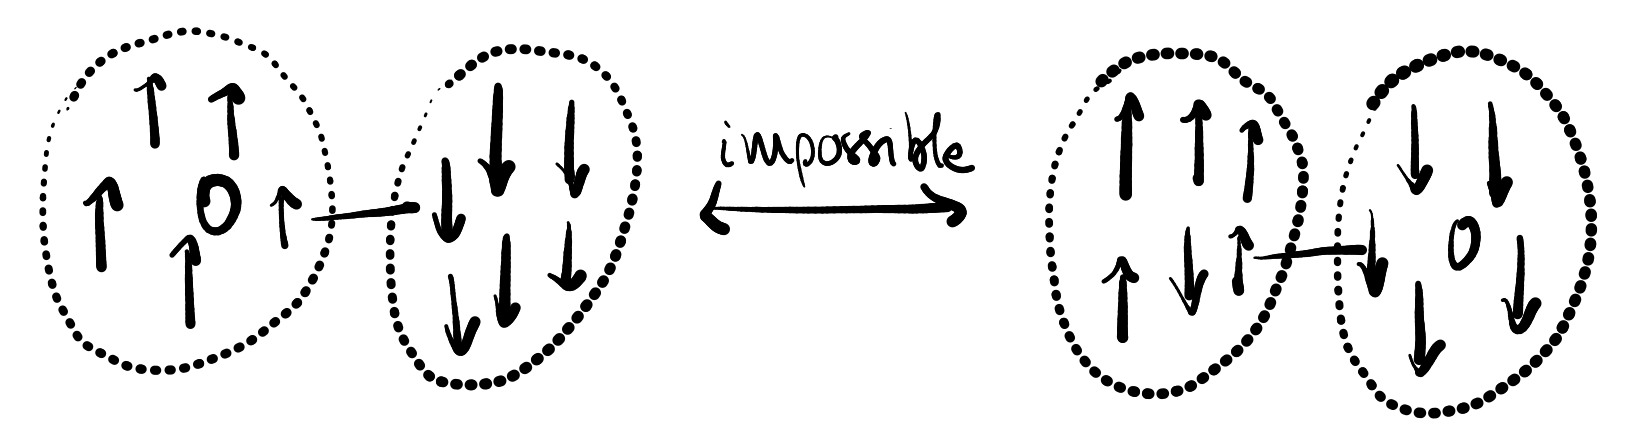 0
impossible
0